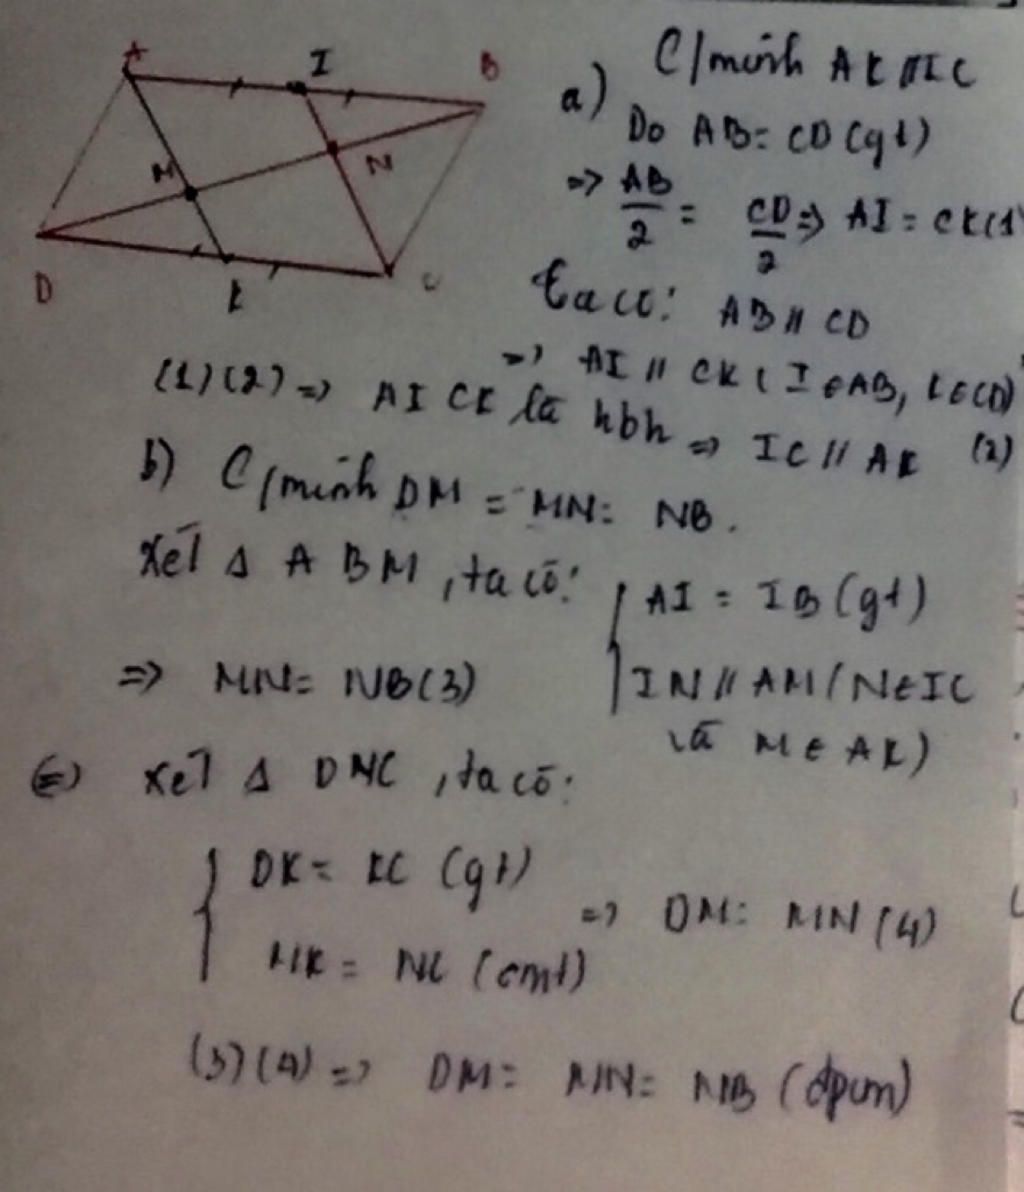 A I B
M N
D K C
C/minh AK // IC
a) Do AB = CD (gt)
=> AB/2 = CD/2 => AI = CK (1)
Ta có: AB // CD
=> AI // CK (I ∈ AB, K ∈ CD)
(2)
(1)(2) => AICK là hbh => IC // AK
b) C/minh DM = MN = NB.
Xét Δ ABM, ta có:
{ AI = IB (gt)
IN // AM (N ∈ IC
và M ∈ AK)
=> MN = NB (3)
Xét Δ DNC, ta có:
{ DK = KC (gt)
MK = NC (cmt)
=> DM = MN (4)
(3)(4) => DM = MN = NB (đpcm)